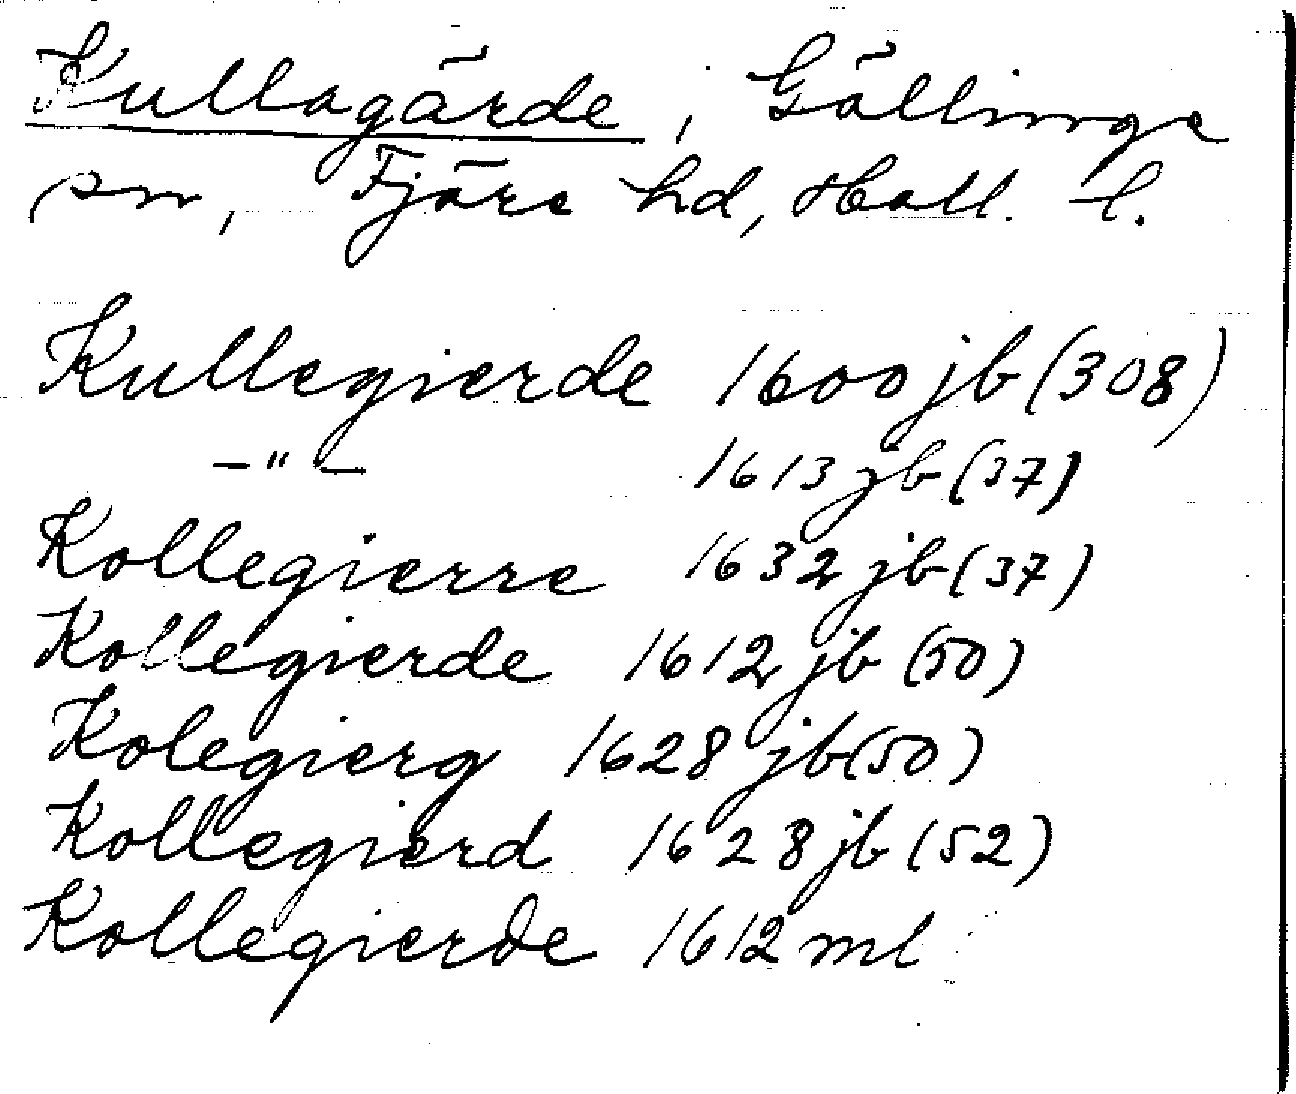 Kullagärde, Gällinge
sn, Fjäre hd, Hall. l.
Kullegierde 1600 jb (308)
—"— 1613 jb (37)
Kollegierre 1632 jb (37)
Kollegierde 1612 jb (50)
Kolegierg 1628 jb (50)
Kollegierd 1628 jb (52)
Kollegierde 1612 ml